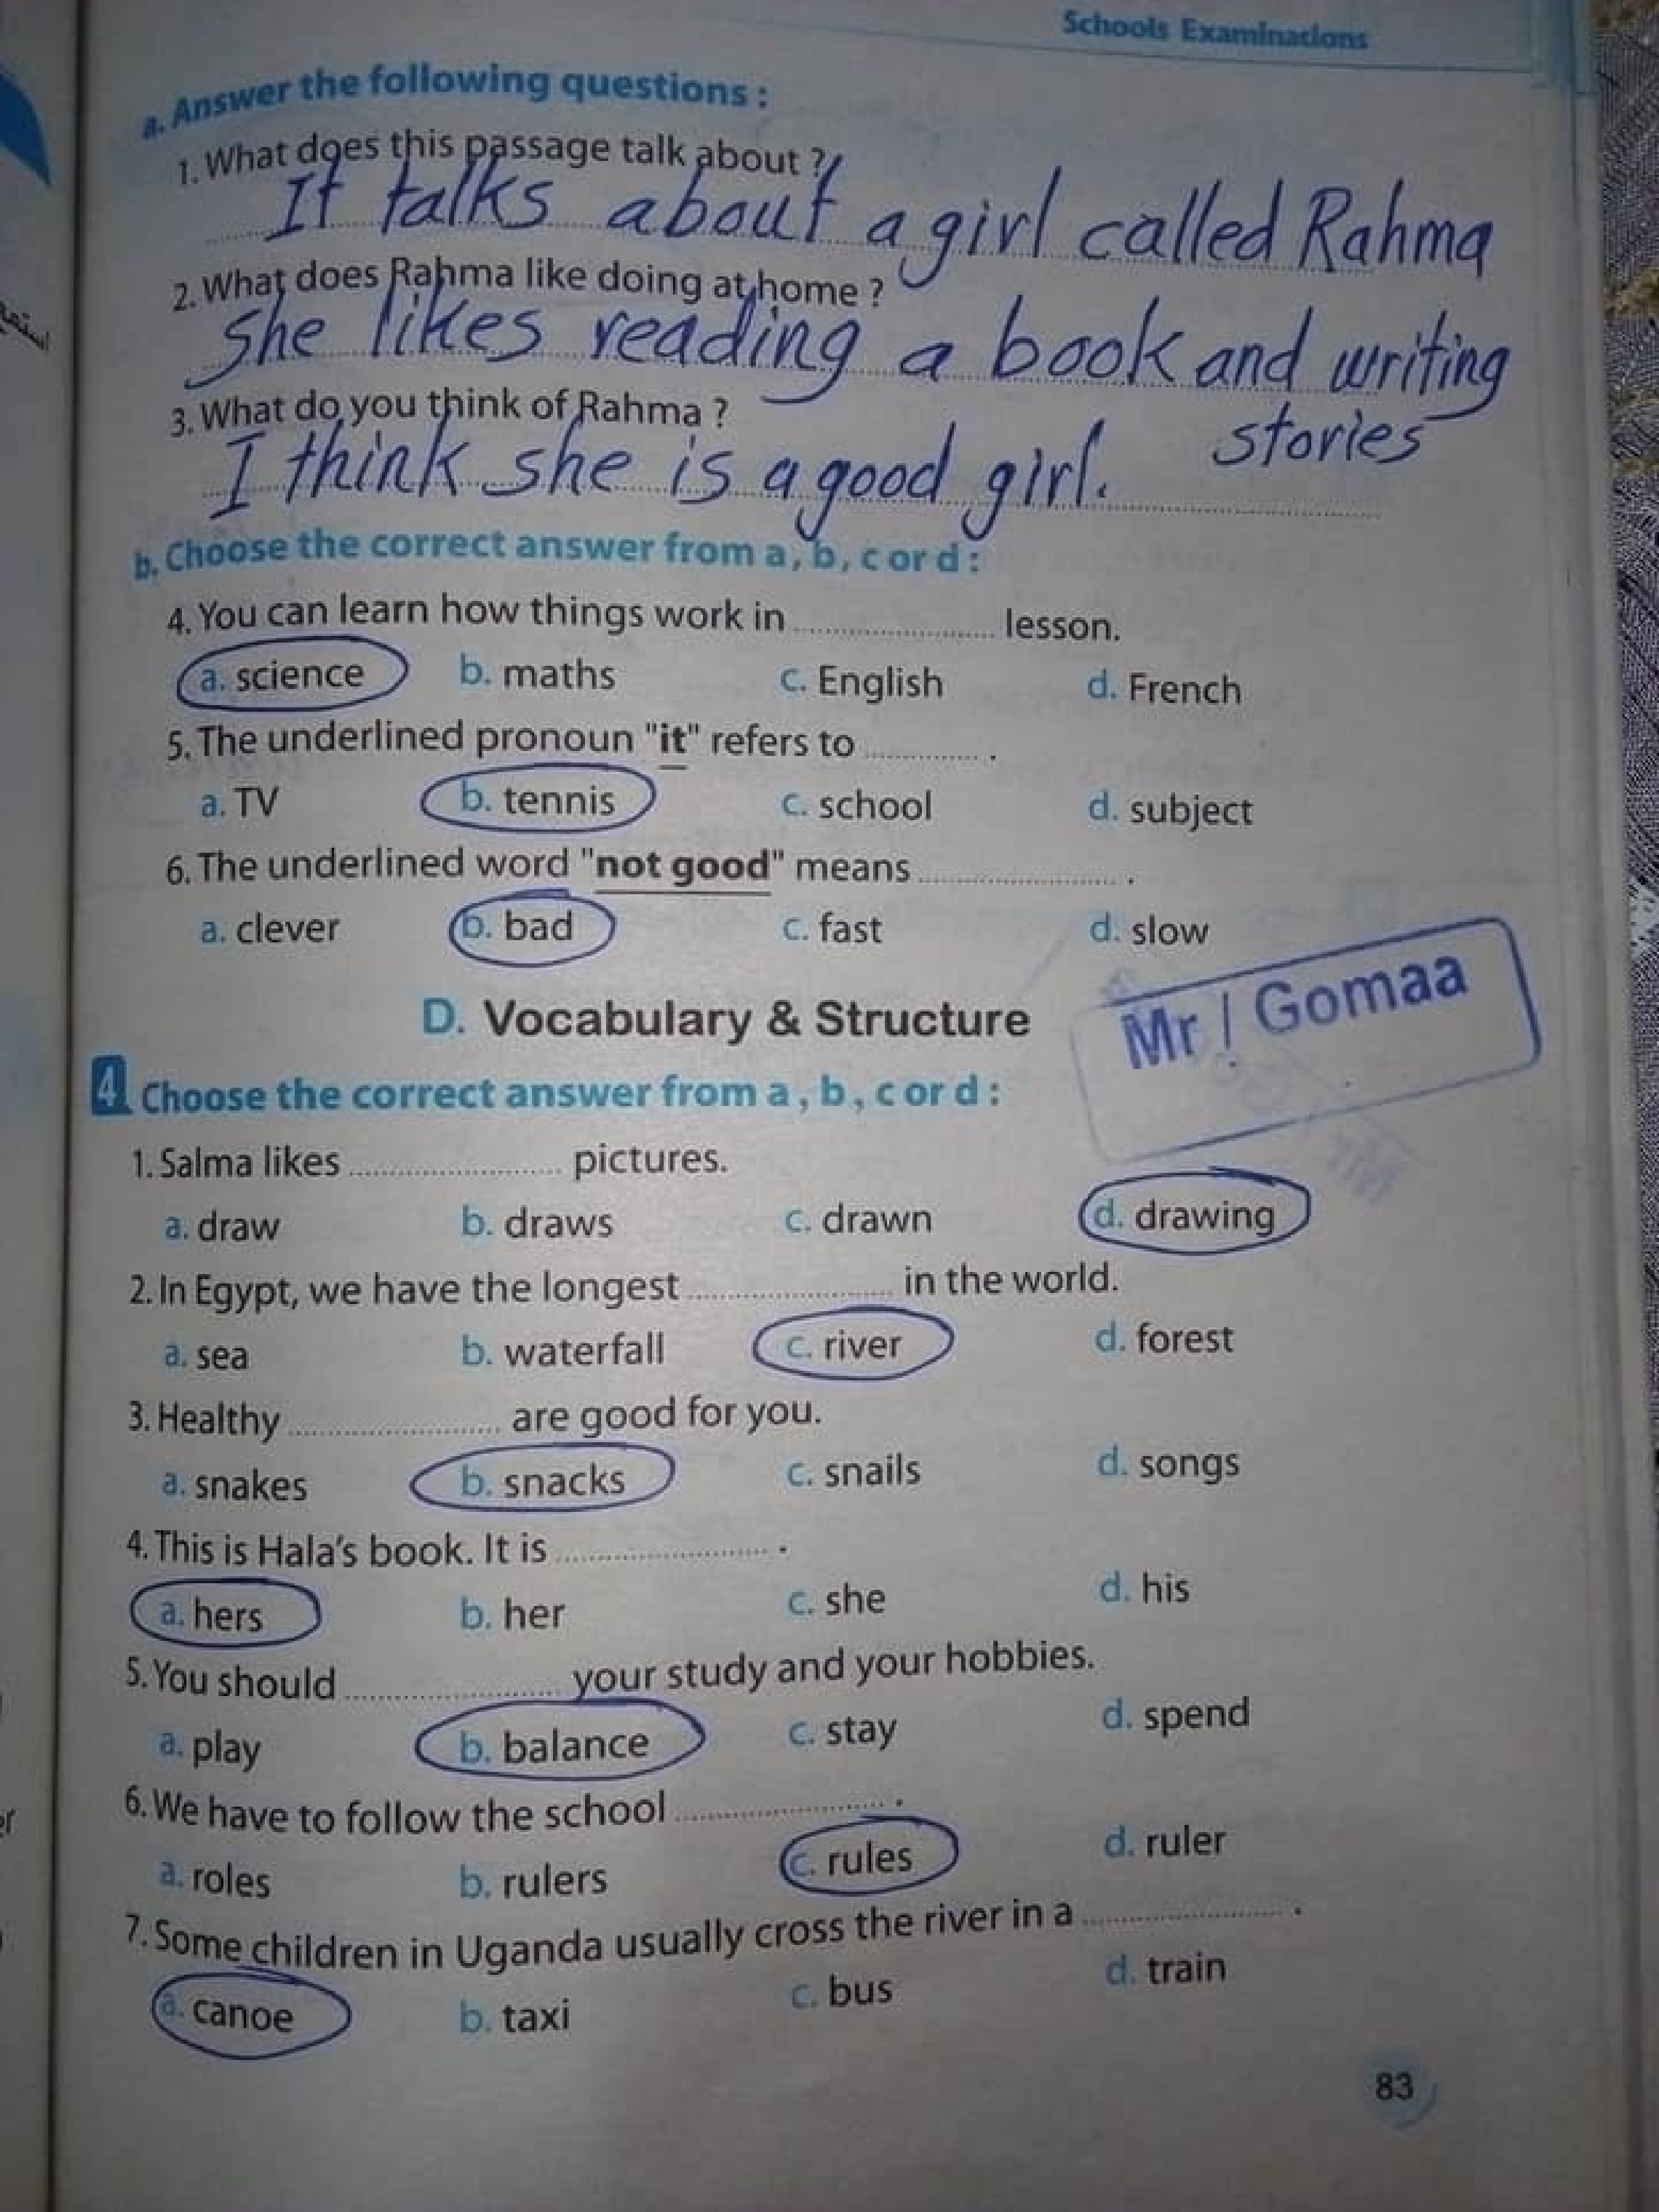 Schools Examinations
a. Answer the following questions :
1. What does this passage talk about ?
It talks about a girl called Rahma
2. What does Rahma like doing at home ?
She likes reading a book and writing
stories
3. What do you think of Rahma ?
I think she is a good girl.
b. Choose the correct answer from a , b , c or d :
4. You can learn how things work in ........................ lesson.
a. science b. maths c. English d. French
5. The underlined pronoun "it" refers to ............. .
a. TV b. tennis c. school d. subject
6. The underlined word "not good" means ........................ .
a. clever b. bad c. fast d. slow
Mr / Gomaa
D. Vocabulary & Structure
4 Choose the correct answer from a , b , c or d :
1. Salma likes ........................ pictures.
a. draw b. draws c. drawn d. drawing
2. In Egypt, we have the longest ........................ in the world.
a. sea b. waterfall c. river d. forest
3. Healthy ........................ are good for you.
a. snakes b. snacks c. snails d. songs
4. This is Hala's book. It is ........................ .
a. hers b. her c. she d. his
5. You should ........................ your study and your hobbies.
a. play b. balance c. stay d. spend
6. We have to follow the school ........................ .
a. roles b. rulers c. rules d. ruler
7. Some children in Uganda usually cross the river in a ........................ .
a. canoe b. taxi c. bus d. train
83